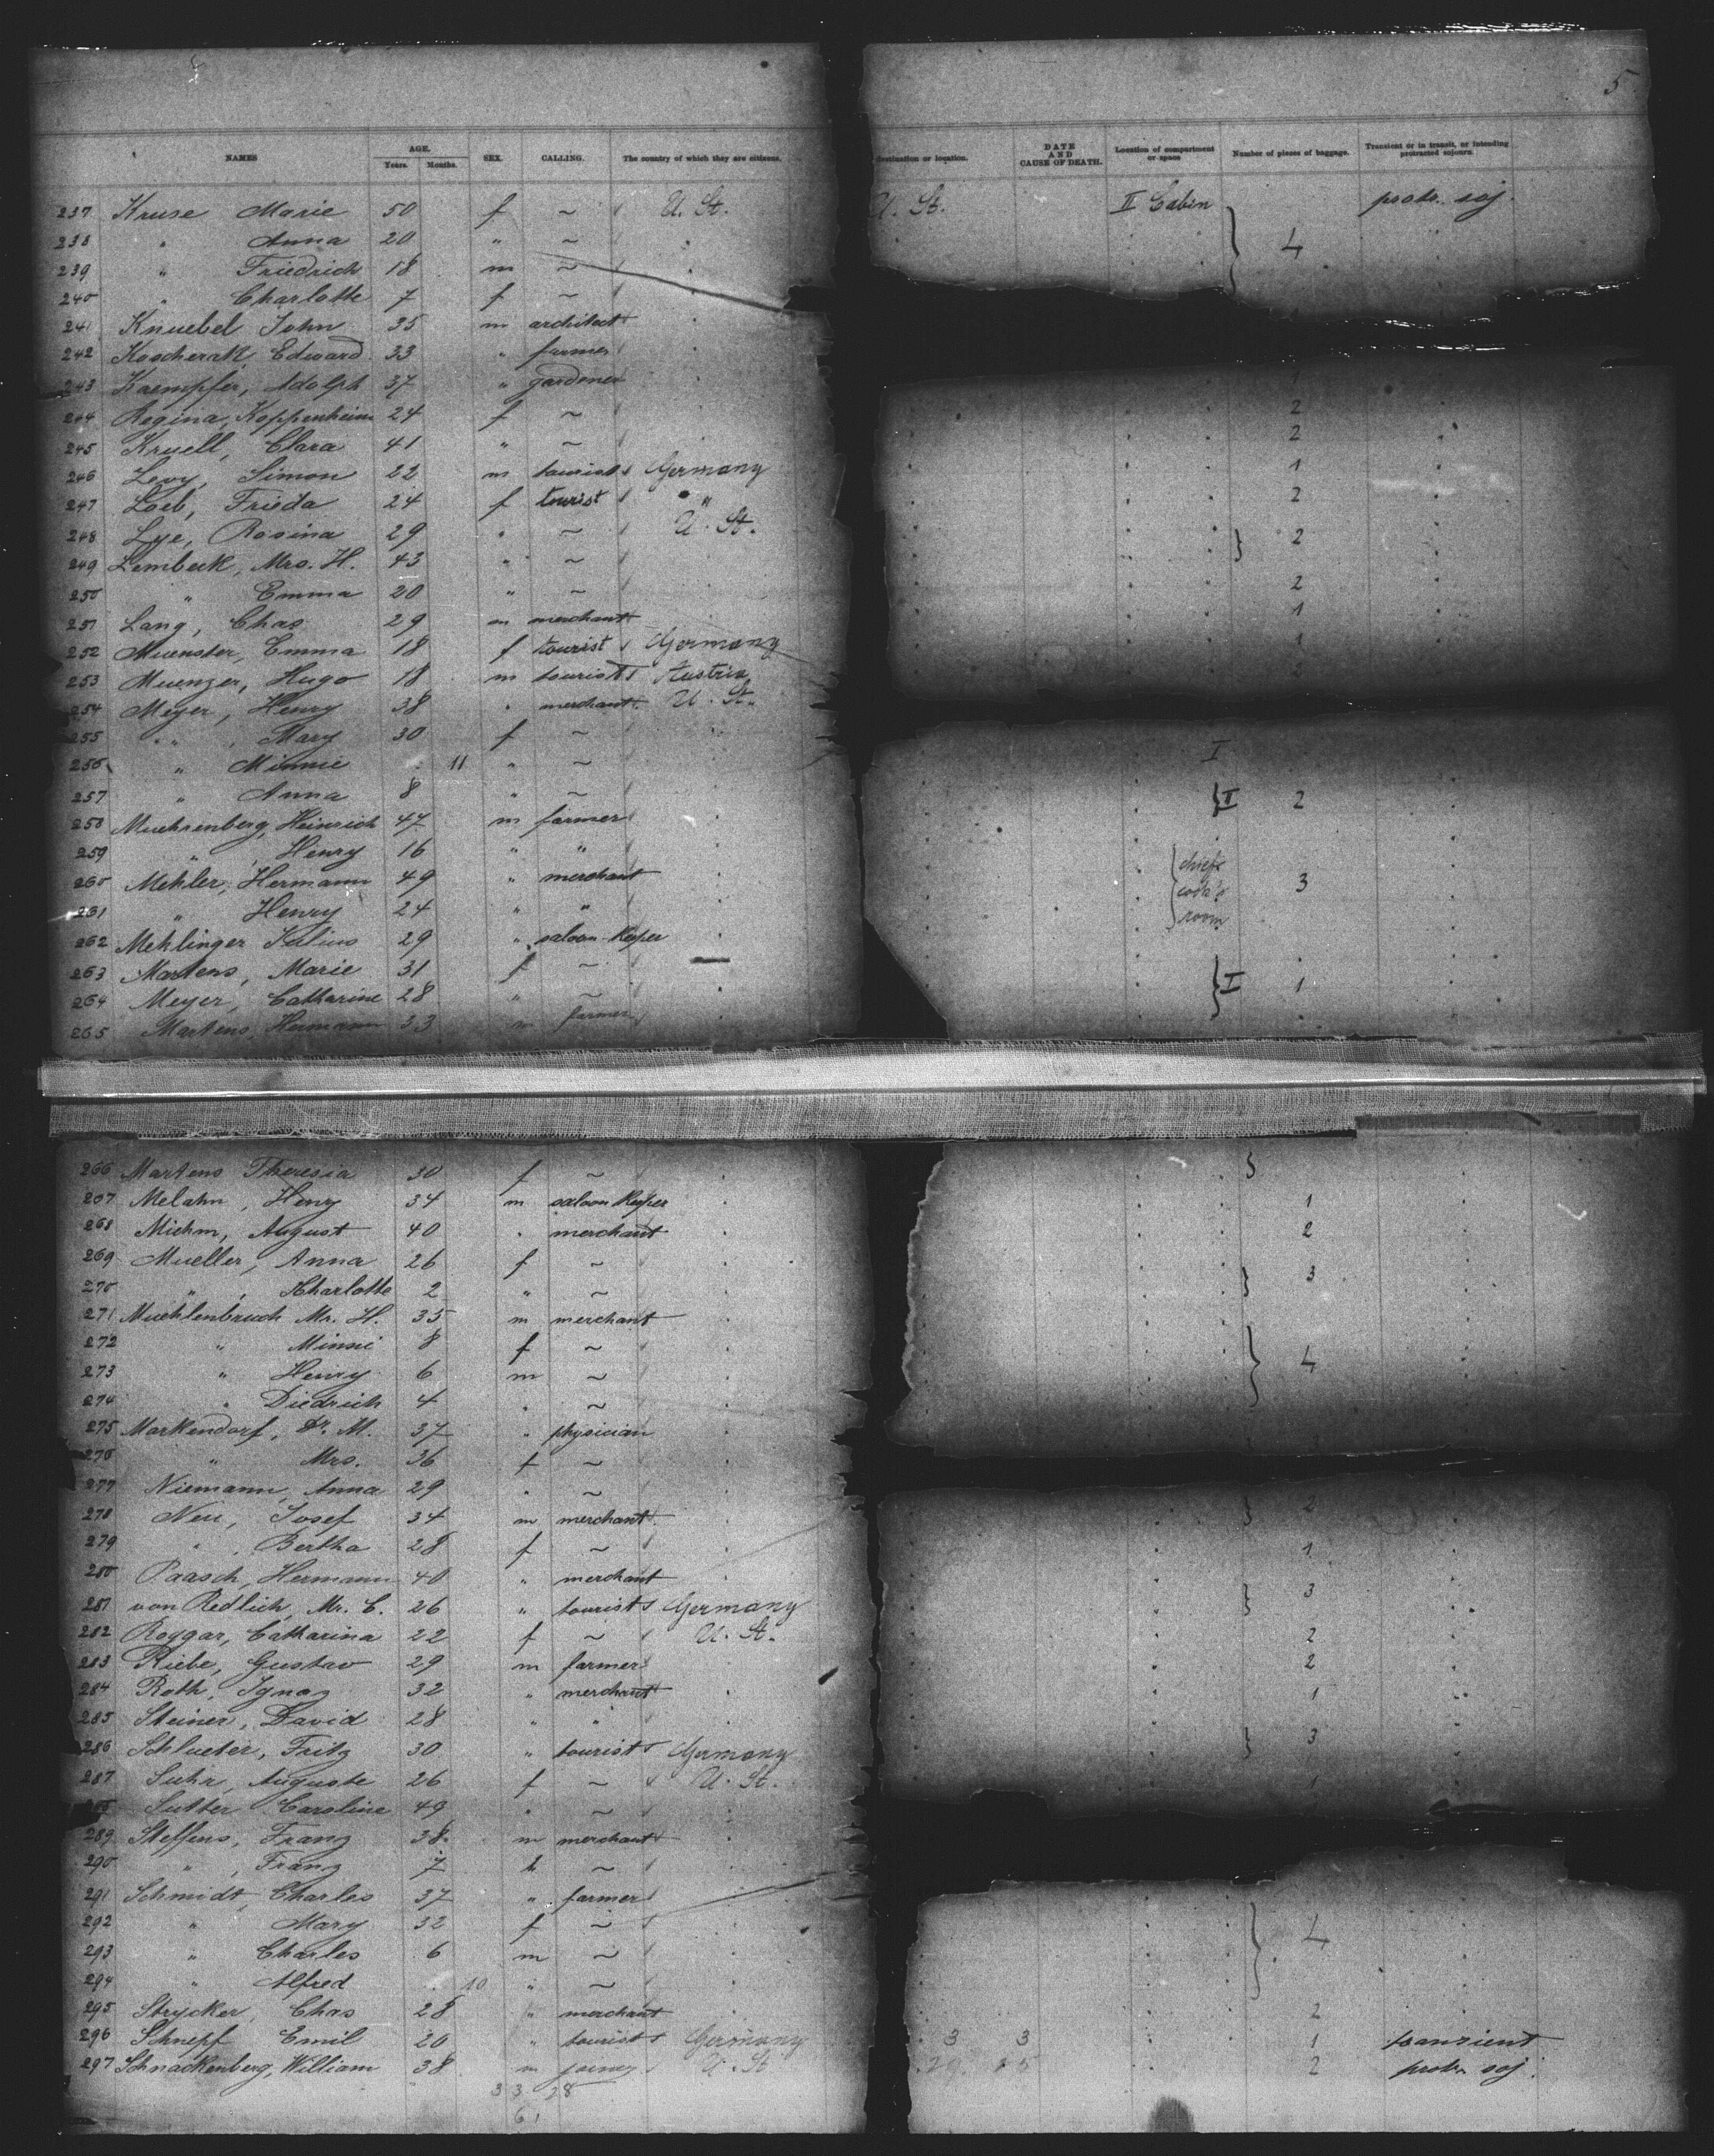 5
NAMES AGE. Years. Months. SEX. CALLING. The country of which they are citizens. destination or location. DATE AND CAUSE OF DEATH. Location of compartment or space Number of pieces of baggage. Transient or in transit, or intending protracted sojourn.
237 Kruse Marie 50 f ~ U. St. U. St. II Cabin protr. soj.
238 " Anna 20 " ~ 4
239 " Friedrich 18 m ~
240 " Charlotte 7 f ~
241 Knuebel John 35 m architect
242 Koscherak, Edward 33 " farmer
243 Kaempfer, Adolph 37 " gardener 1
244 Regina, Koppenheim 24 f ~ 2
245 Kruell, Clara 41 " ~ 2
246 Levy, Simon 22 m tourist Germany 1
247 Loeb, Frieda 24 f tourist " 2
248 Lye, Rosina 29 " ~ U. St. } 2
249 Lembeck, Mrs. H. 43 " ~
250 " Emma 20 " ~ 2
251 Lang, Chas 29 m merchant 1
252 Muenster, Emma 18 f tourist Germany 1
253 Muenzer, Hugo 18 m tourist Austria 2
254 Meyer, Henry 38 " merchant U. St.
255 " , Mary 30 f ~ I
256 " Minnie 11 " ~
257 " Anna 8 " ~ } II 2
258 Muehrenberg, Heinrich 47 m farmer
259 " , Henry 16 " "
260 Mehler, Hermann 49 " merchant { chief cook's room 3
261 " Henry 24 " "
262 Mehlinger Julius 29 " saloon-keeper
263 Martens, Marie 31 f ~
264 Meyer, Catharine 28 " ~ } I 1
265 Martens, Hermann 33 m farmer
266 Martens Theresia 30 f ~ }
267 Melahn, Henry 34 m saloon keeper 1
268 Miehm, August 40 " merchant 2
269 Mueller, Anna 26 f ~ } 3
270 " , Charlotte 2 " ~
271 Muehlenbruch Mr. H. 35 m merchant
272 " Minnie 8 f ~ } 4
273 " Henry 6 m ~
274 " Diedrich 4 " ~
275 Markendorf, Dr. M. 37 " physician
276 " Mrs. 36 f ~
277 Niemann, Anna 29 " ~
278 Neu, Josef 34 m merchant } 2
279 " , Bertha 28 f ~ 1
280 Paasch, Hermann 40 " merchant
281 von Redlich, Mr. C. 26 " tourist Germany } 3
282 Roggar, Catharina 22 f ~ U. St. 2
283 Riebe, Gustav 29 m farmer 2
284 Roth, Ignaz 32 " merchant 1
285 Steiner, David 28 " "
286 Schlueter, Fritz 30 " tourist Germany } 3
287 Suhr, Auguste 26 f ~ U. St. 1
288 Sutter Caroline 49 " ~
289 Steffens, Franz 38 m merchant
290 " , Franz 7 " ~
291 Schmidt, Charles 37 " farmer
292 " Mary 32 f ~ } 4
293 " Charles 6 m ~
294 " Alfred 10 " ~
295 Strycker, Chas 28 " merchant 2
296 Schnepf Emil 20 " tourist Germany 3 3 1 transient
297 Schnackenberg, William 38 m U. St 2 protr. soj.
33 28
61